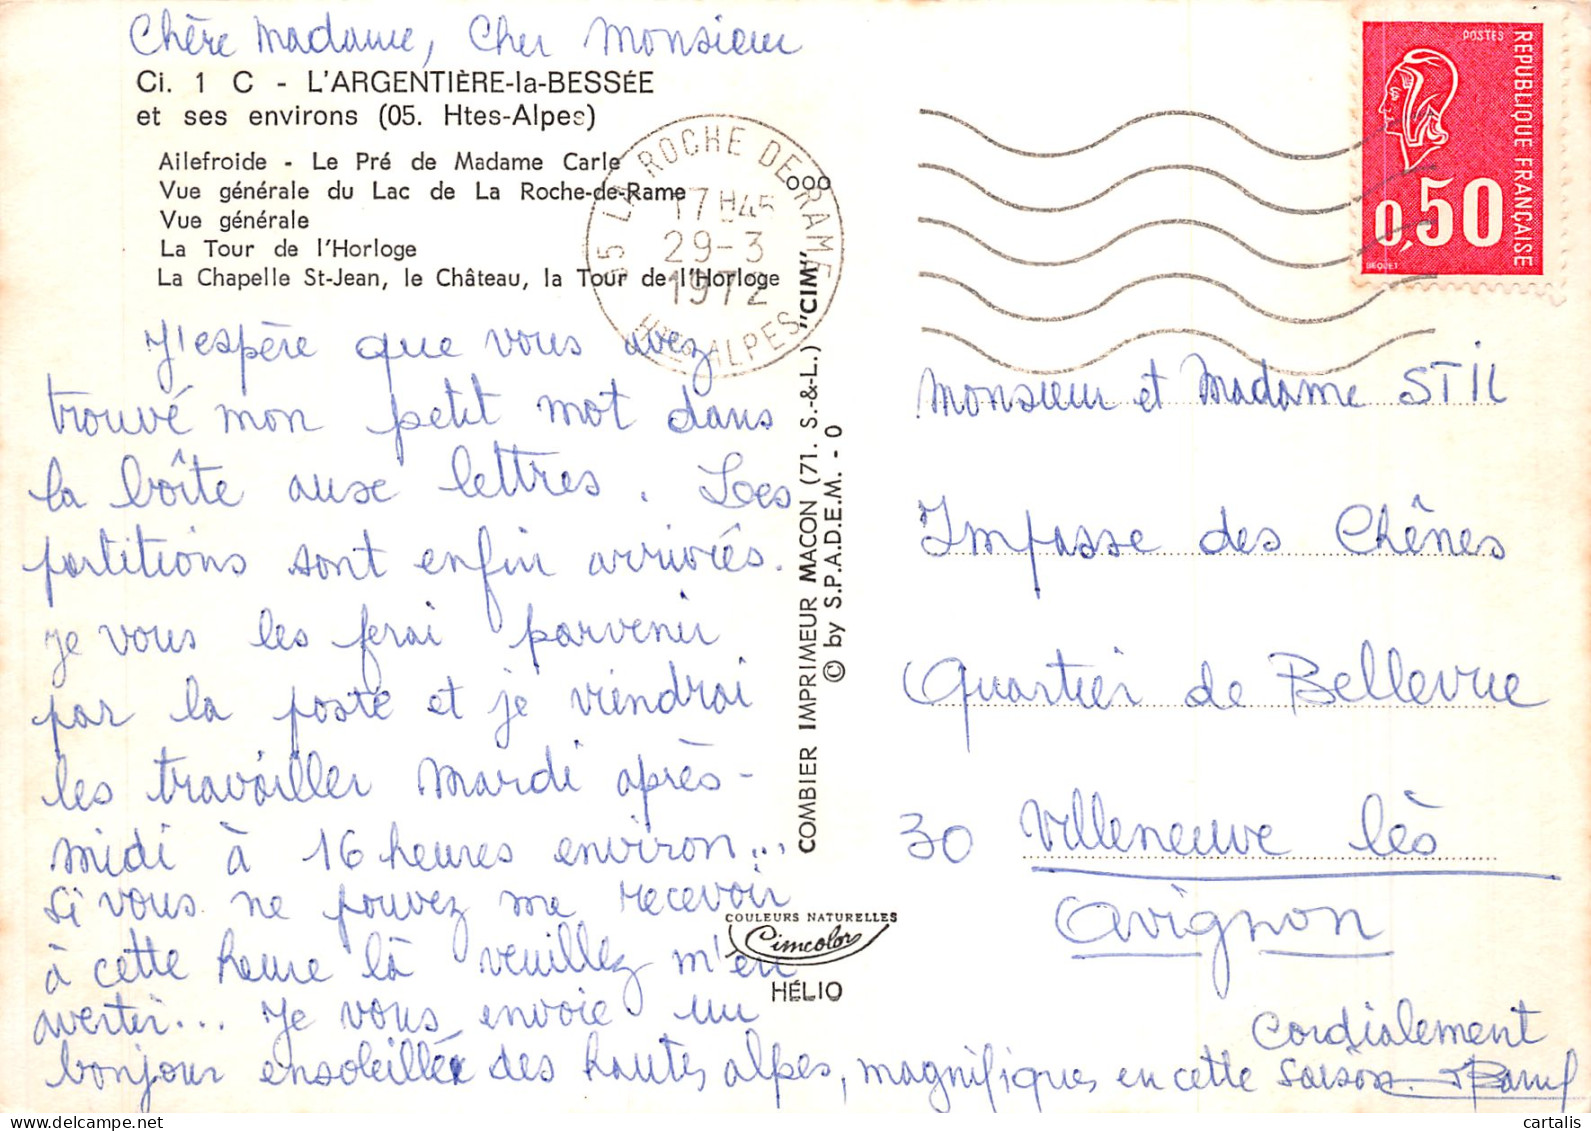 Chère Madame, Cher Monsieur
Ci. 1 C - L'ARGENTIÈRE-la-BESSÉE
et ses environs (05. Htes-Alpes)
Ailefroide - Le Pré de Madame Carle
Vue générale du Lac de La Roche-de-Rame
Vue générale
La Tour de l'Horloge
La Chapelle St-Jean, le Château, la Tour de l'Horloge
J'espère que vous avez
trouvé mon petit mot dans
la boîte aux lettres. Les
partitions sont enfin arrivées.
je vous les ferai parvenir
par la poste et je viendrai
les travailler mardi après-
midi à 16 heures environ...
Si vous ne pouvez me recevoir
à cette heure là veuillez m'en
avertir... Je vous envoie un
bonjour ensoleillée des hautes alpes, magnifiques en cette saison.
Cordialement
05 LA ROCHE DE RAME
17 H45
29-3
1972
Htes ALPES
COMBIER IMPRIMEUR MACON (71. S.-&-L.) "CIM"
© by S.P.A.D.E.M. - 0
COULEURS NATURELLES
Cimcolor
HÉLIO
POSTES
REPUBLIQUE FRANÇAISE
0,50
BEQUET
Monsieur et Madame STIL
Impasse des Chênes
Quartier de Bellevue
30 Villeneuve lès
Avignon
cartalis